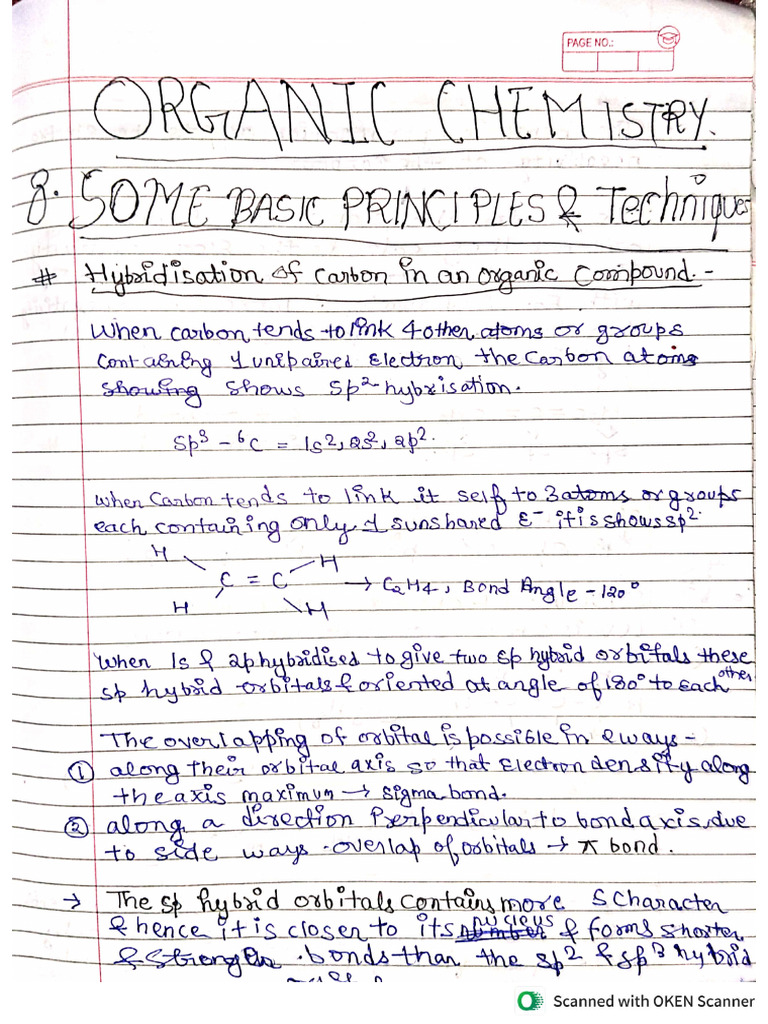 PAGE NO.:
ORGANIC CHEMISTRY.
8. SOME BASIC PRINCIPLES & Techniques
# Hybridisation of Carbon in an organic Compound. -
When carbon tends to link 4 other atoms or groups
containing 1 unipaired Electron the Carbon atoms
showing shows Sp2 hybrisation.
Sp3 - 6C = 1s2, 2s2, 2p2.
When Carbon tends to link it self to 3 atoms or groups
each containing only 1 sunshared E- it is shows sp2.
H H
C = C → C2H4, Bond Angle - 120°
H H
When 1s & 2p hybridised to give two sp hybrid orbitals these
sp hybrid orbitals & oriented at angle of 180° to each other
The overlapping of orbital is possible in 2 ways -
① along their orbital axis so that Electron density along
the axis maximum → sigma bond.
② along a direction Perpendicular to bond axis due
to side ways overlap of orbitals → π bond.
→ The sp hybrid orbitals contains more S character
& hence it is closer to its number nucleus & forms shorter
& stronger bonds than the sp2 & sp3 hybrid
Scanned with OKEN Scanner